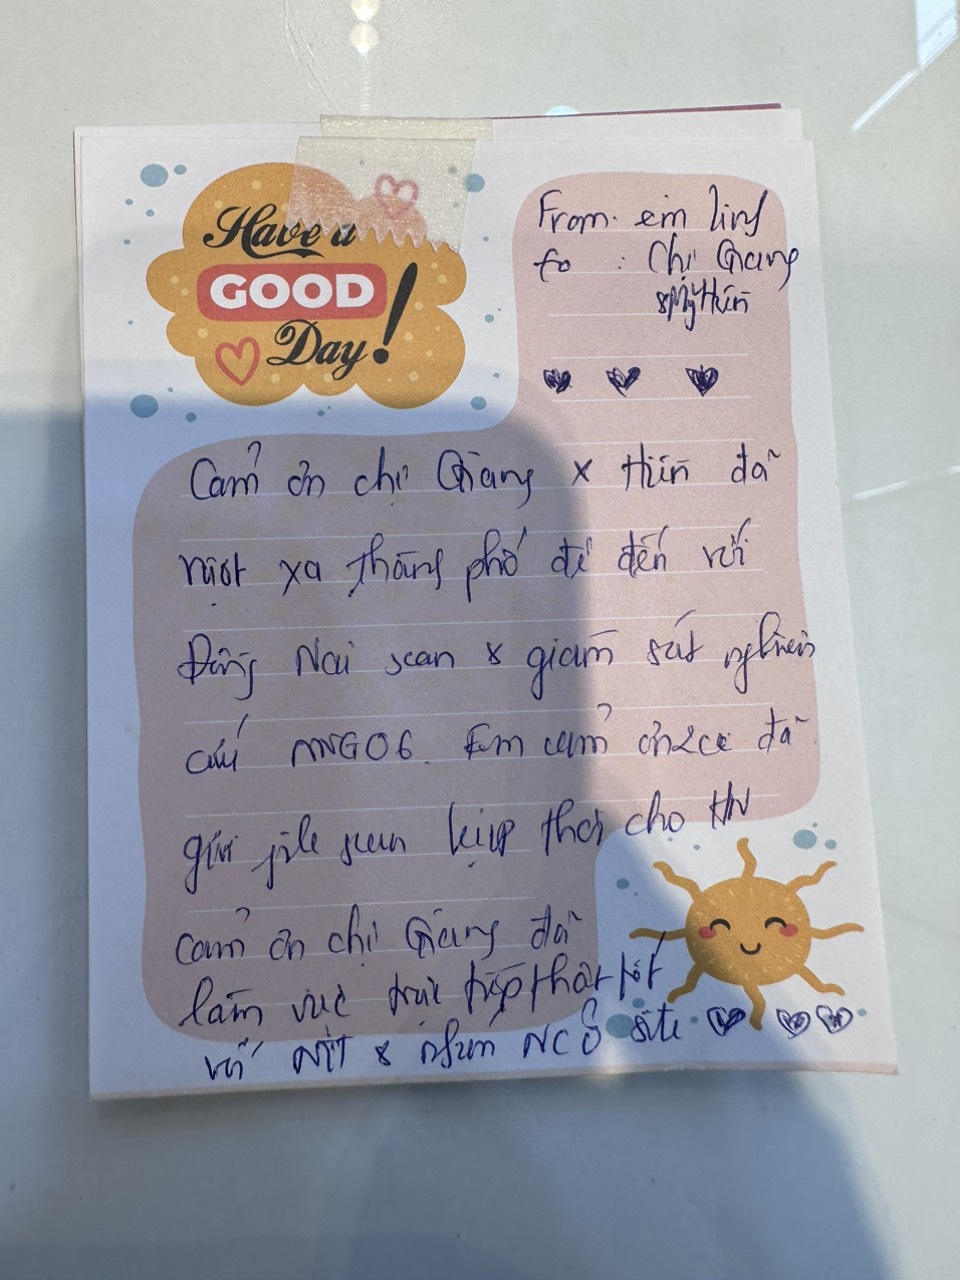 Have a
GOOD
Day!
From: em Linh
to : Chị Giang
& Mỹ Hiền
Cảm ơn chị Giang x Hiền đã
xa thành phố để đến với
Đồng Nai scan & giám sát nghiên
cứu MNG06. Em cảm ơn 2 chị đã
gửi file scan kịp thời cho HN
cảm ơn chị Giang đã
làm việc trực tiếp thật tốt
với & nhóm NC ở site